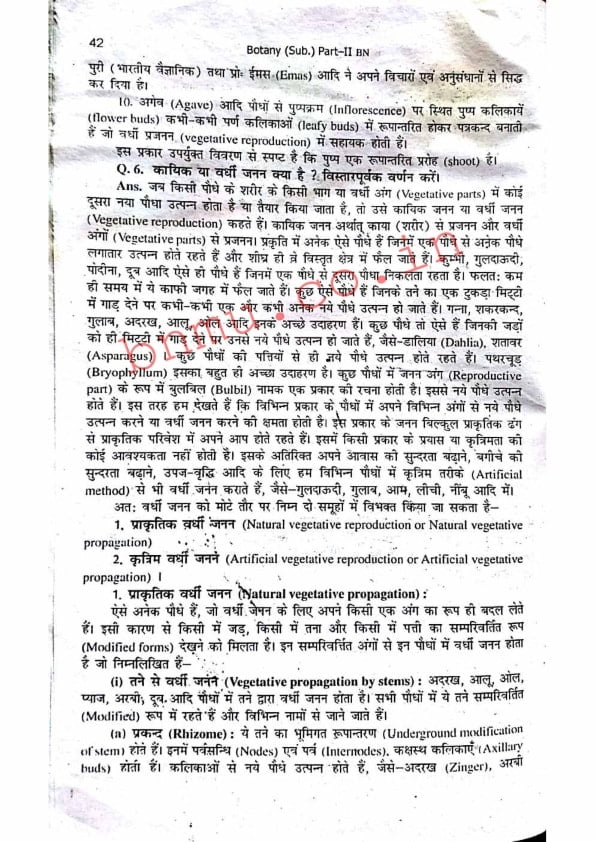 42
Botany (Sub.) Part-II BN
पुरी (भारतीय वैज्ञानिक) तथा प्रो॰ ईमस (Emas) आदि ने अपने विचारों एवं अनुसंधानों से सिद्ध
कर दिया है।
10. अगेव (Agave) आदि पौधों से पुष्पक्रम (Inflorescence) पर स्थित पुष्प कलिकायें
(flower buds) कभी-कभी पर्ण कलिकाओं (leafy buds) में रूपान्तरित होकर पत्रकन्द बनाती
हैं जो वर्धी प्रजनन (vegetative reproduction) में सहायक होती हैं।
इस प्रकार उपर्युक्त विवरण से स्पष्ट है कि पुष्प एक रूपान्तरित प्ररोह (shoot) है।
Q. 6. कायिक या वर्धी जनन क्या है ? विस्तारपूर्वक वर्णन करें।
Ans. जब किसी पौधे के शरीर के किसी भाग या वर्धी अंग (Vegetative parts) में कोई
दूसरा नया पौधा उत्पन्न होता है या तैयार किया जाता है, तो उसे कायिक जनन या वर्धी जनन
(Vegetative reproduction) कहते हैं। कायिक जनन अर्थात् काया (शरीर) से प्रजनन और वर्धी
अंगों (Vegetative parts) से प्रजनन। प्रकृति में अनेक ऐसे पौधे हैं जिनमें एक पौधे से अनेक पौधे
लगातार उत्पन्न होते रहते हैं और शीघ्र ही वे विस्तृत क्षेत्र में फैल जाते हैं। कुम्भी, गुलदाऊदी,
पोदीना, दूब आदि ऐसे ही पौधे हैं जिनमें एक पौधे से दूसरा पौधा निकलता रहता है। फलतः कम
ही समय में ये काफी जगह में फैल जाते हैं। कुछ ऐसे पौधे हैं जिनके तने का एक टुकड़ा मिट्टी
में गाड़ देने पर कभी-कभी एक और कभी अनेक नये पौधे उत्पन्न हो जाते हैं। गन्ना, शकरकन्द,
गुलाब, अदरख, आलू, ओल आदि इनके अच्छे उदाहरण हैं। कुछ पौधे तो ऐसे हैं जिनकी जड़ों
को ही मिट्टी में गाड़ देने पर उनसे नये पौधे उत्पन्न हो जाते हैं, जैसे-डालिया (Dahlia), शतावर
(Asparagus) कुछ पौधों की पत्तियों से ही नये पौधे उत्पन्न होते रहते हैं। पथरचूड़
(Bryophyllum) इसका बहुत ही अच्छा उदाहरण है। कुछ पौधों में जनन अंग (Reproductive
part) के रूप में बुलबिल (Bulbil) नामक एक प्रकार की रचना होती है। इससे नये पौधे उत्पन्न
होते हैं। इस तरह हम देखते हैं कि विभिन्न प्रकार के पौधों में अपने विभिन्न अंगों से नये पौधे
उत्पन्न करने या वर्धी जनन करने की क्षमता होती है। इस प्रकार के जनन बिल्कुल प्राकृतिक ढंग
से प्राकृतिक परिवेश में अपने आप होते रहते हैं। इसमें किसी प्रकार के प्रयास या कृत्रिमता की
कोई आवश्यकता नहीं होती है। इसके अतिरिक्त अपने आवास की सुन्दरता बढ़ाने, बगीचे की
सुन्दरता बढ़ाने, उपज-वृद्धि आदि के लिए हम विभिन्न पौधों में कृत्रिम तरीके (Artificial
method) से भी वर्धी जनन कराते हैं, जैसे-गुलदाऊदी, गुलाब, आम, लीची, नींबू आदि में।
अतः वर्धी जनन को मोटे तौर पर निम्न दो समूहों में विभक्त किया जा सकता है-
1. प्राकृतिक वर्धी जनन (Natural vegetative reproduction or Natural vegetative
propagation)
2. कृत्रिम वर्धी जनन (Artificial vegetative reproduction or Artificial vegetative
propagation) ।
1. प्राकृतिक वर्धी जनन (Natural vegetative propagation) :
ऐसे अनेक पौधे हैं, जो वर्धी जनन के लिए अपने किसी एक अंग का रूप ही बदल लेते
हैं। इसी कारण से किसी में जड़, किसी में तना और किसी में पत्ती का सम्परिवर्तित रूप
(Modified forms) देखने को मिलता है। इन सम्परिवर्तित अंगों से इन पौधों में वर्धी जनन होता
है जो निम्नलिखित हैं-
(i) तने से वर्धी जनन (Vegetative propagation by stems) : अदरख, आलू, ओल,
प्याज, अरबी, दूब आदि पौधों में तने द्वारा वर्धी जनन होता है। सभी पौधों में ये तने सम्परिवर्तित
(Modified) रूप में रहते हैं और विभिन्न नामों से जाने जाते हैं।
(a) प्रकन्द (Rhizome) : ये तने का भूमिगत रूपान्तरण (Underground modification
of stem) होते हैं। इनमें पर्वसन्धि (Nodes) एवं पर्व (Internodes), कक्षस्थ कलिकाएँ (Axillary
buds) होती हैं। कलिकाओं से नये पौधे उत्पन्न होते हैं, जैसे-अदरख (Zinger), अरबी
bnmu.co.in